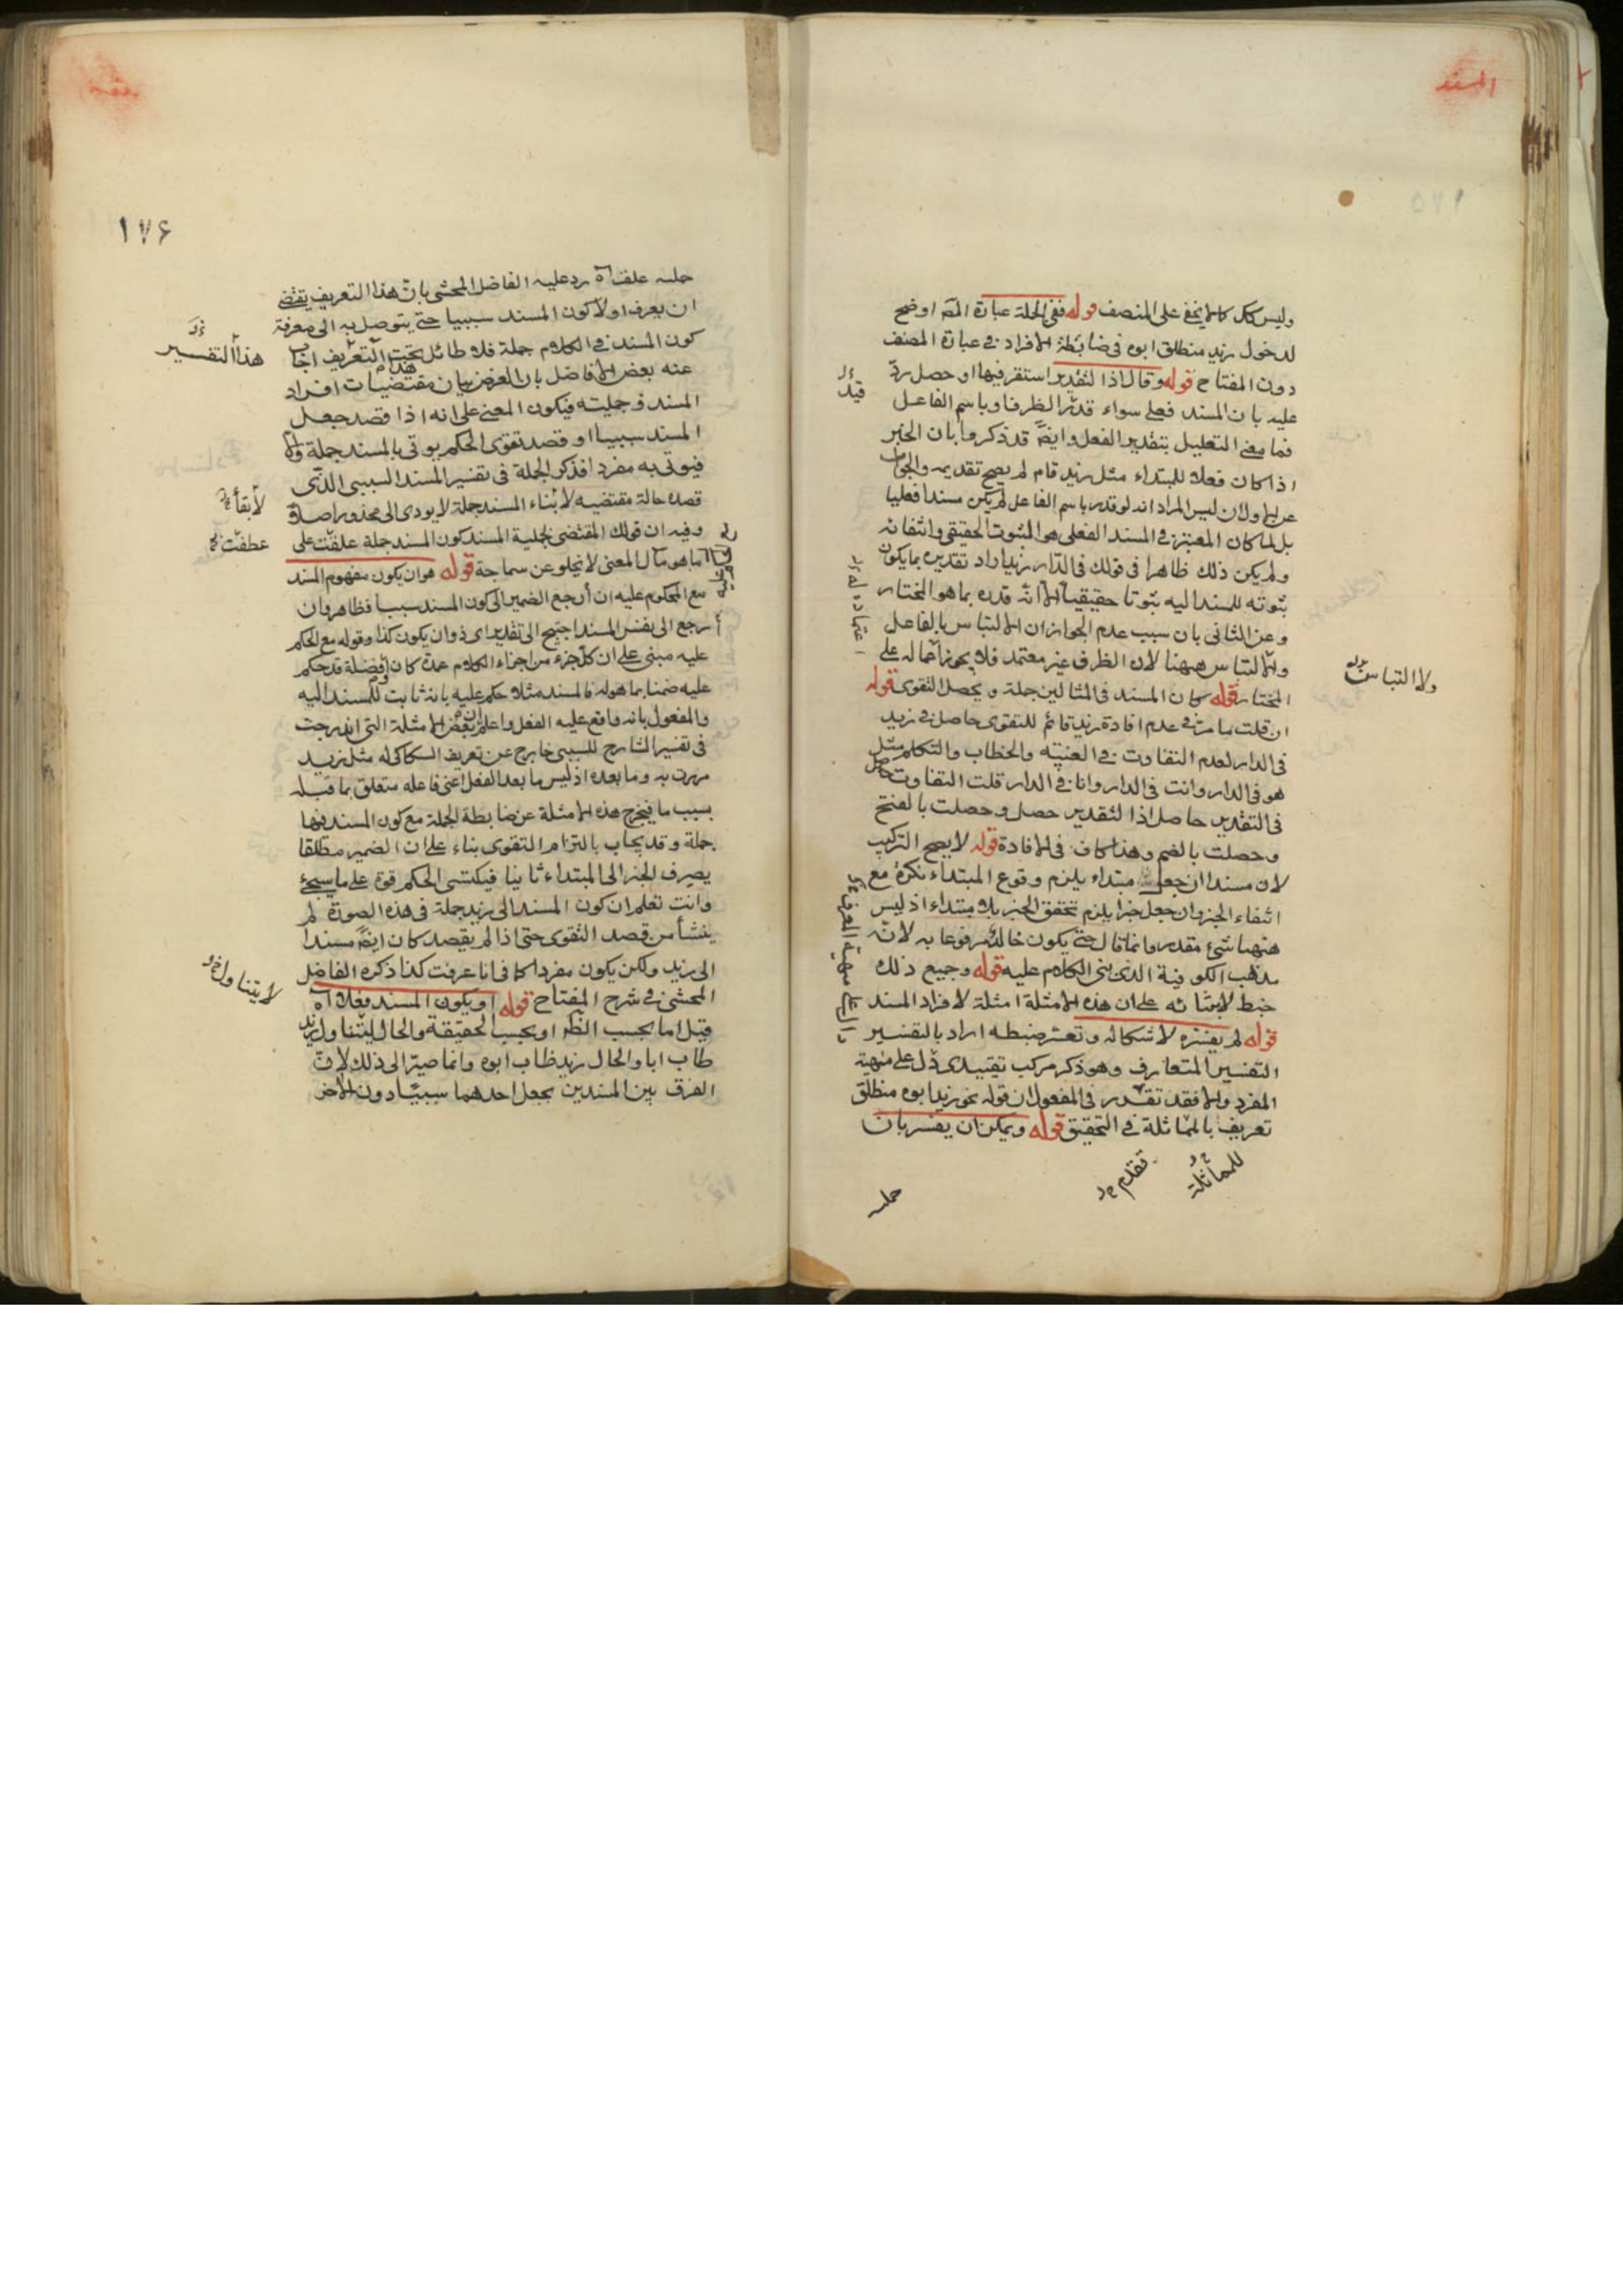 المسند
وليس كك كما لا يخفى على المنصف قوله ففى الجملة عبارة المص اوضح
لدخول زيد منطلق ابوه فى ضابطة الافراد فى عبارة المصنف
دون المفتاح قوله وقال اذا لتقدير استقر فيها او حصل ردّ
عليه بان المسند فعلى سواء قدّر الظرف او باسم الفاعل
فما معنى التعليل بتقدير الفعل وايضً قد ذكروا بان الخبر
اذا كان فعلا للمبتداء مثل زيد قام لم يصح تقديمه والجواب
عن الاول ان ليس المراد انه لو قدر باسم الفاعل لم يكن مسندا فعليا
بل لما كان المعتبر فى المسند الفعلى هو الثبوت الحقيقى وانتفائه
ولم يكن ذلك ظاهرا فى قولك فى الدار زيد اراد تقديره بما يكون
ثبوته للمسند اليه ثبوتا حقيقيا الا انه قدره بما هو المختار
وعن الثانى بان سبب عدم الجواز ان الالتباس بالفاعل
والالتباس ههنا لان الظرف غير معتمد فلا يجوز اعماله على
المختار قوله كان المسند فى المثالين جملة ويحصل التقوى قوله
ان قلت ما مر فى عدم افادة زيد قائم للتقوى حاصل فى زيد
فى الدار لعدم التفاوت فى الغيبة والخطاب والتكلم مثل
هو فى الدار وانت فى الدار وانا فى الدار قلت التفاوت حاصل
فى التقدير حاصل اذا لتقدير حصل وحصلت بالفتح
وحصلت بالضم وهذا كاف فى الافادة قوله لا يصح التركيب
لان مسندا ان جعل مبتداء يلزم وقوع المبتداء نكرة مع
انتفاء الخبر وان جعل خبرا يلزم تحقق الخبر بلا مبتداء اذ ليس
ههنا شئ مقدر وانما قال حتى يكون خالد مرفوعا به لانه
مذهب الكوفية الذى بنى الكلام عليه قوله وجميع ذلك
خبط لابتنائه على ان هذه الامثلة امثلة لافراد المسند
قوله لم يفسره لاشكاله وتعسر ضبطه اراد بالتفسير
التفسير المتعارف وهو ذكر مركب تقييدى دل على مهية
المفرد والا فقد تقدر فى المفعول ان قوله نحو زيد ابوه منطلق
تعريف بالمماثلة فى التحقيق قوله ويمكن ان يفسر بان
للمماثلة
تقدم
جملة
ولا التباس
قيل
١٧٦
جملة علقت اه رد عليه الفاضل المحشى بان هذا التعريف يقتضى
ان يعرف اولا كون المسند سببيا حتى يتوصل به الى معرفة
كون المسند فى الكلام جملة فلا طائل تحت هذا التعريف اجاب
عنه بعض الافاضل بان الغرض بيان مقتضيات افراد
المسند وجمليته فيكون المعنى على انه اذا قصد جعل
المسند سببيا او قصد تقوى الحكم يوتى بالمسند جملة والا
فيوتى به مفردا فذكر الجملة فى تفسير المسند السببى الذى
قصده حالة مقتضيه لابناء المسند جملة لا يودى الى محذور اصلا
وفيه ان قولك المقتضى لجملية المسند كون المسند جملة علقت على
ما هو مآل المعنى لا يخلو عن سماجة قوله هو ان يكون مفهوم المسند
مع المحكوم عليه ان ارجع الضمير الى كون المسند سببيا فظاهر وان
ارجع الى نفس المسند احتيج الى تقدير اى ذو ان يكون كذا وقوله مع الحكم
عليه مبنى على ان كل جزء من اجزاء الكلام عمدة كان او فضلة قد حكم
عليه ضمنا بما هو له فالمسند مثلا حكم عليه بانه ثابت للمسند اليه
والمفعول بانه واقع عليه الفعل واعلم ان بعض الامثلة التى اندرجت
فى تفسير الشارح للسببى خارج عن تعريف السكاكى له مثل زيد
مررت به وما بعده اذ ليس ما بعد الفعل اعنى فاعله متعلق بما قبله
بسبب ما فيخرج هذه الامثلة عن ضابطة الجملة مع كون المسند فيها
جملة وقد يجاب بالتزام التقوى بناء على ان الضمير مطلقا
يصرف الخبر الى المبتداء ثانيا فيكتسى الحكم قوة على ما سيجئ
وانت تعلم ان كون المسند الى زيد جملة فى هذه الصورة لم
ينشأ من قصد التقوى حتى اذا لم يقصد كان ايضً مسندا
الى زيد ولكن يكون مفردا كما فى انا عرفت كذا ذكره الفاضل
المحشى فى شرح المفتاح قوله او يكون المسند فعلا اه
قيل اما بحسب الظ او بحسب الحقيقة والحال ليتناول زيد
طاب ابا والحال زيد طاب ابوه وانما صير الى ذلك لان
الفرق بين المسندين بجعل احدهما سببيا دون الاخر
هذا التفسير
لابقاء
عطفت
لا يتناول